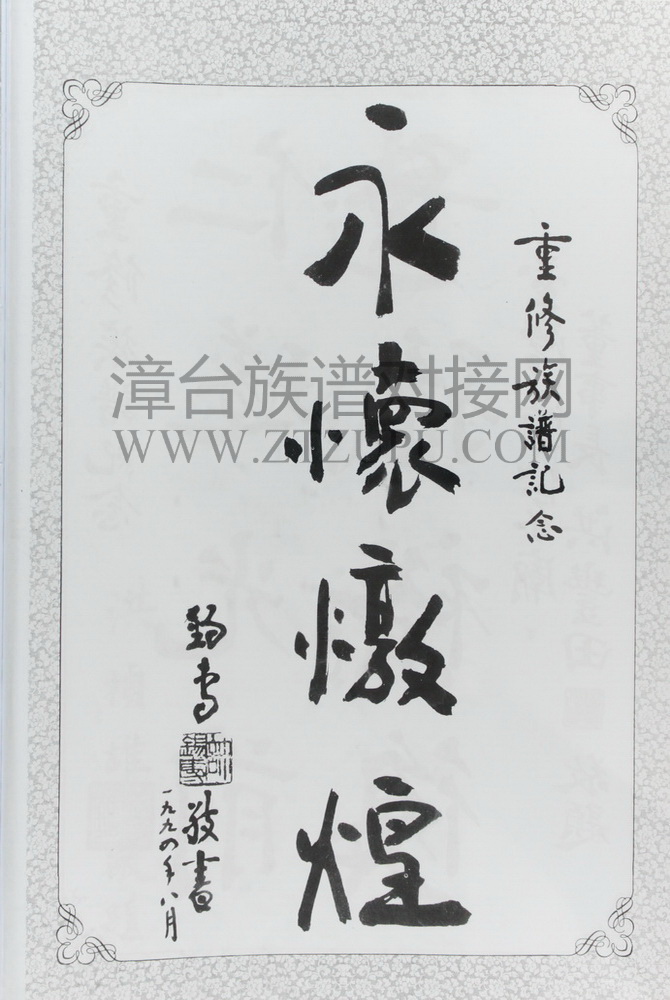 重修族譜記念
永懷燉煌
錫專
敬書
一九九四年八月
漳台族谱对接网
WWW.ZTZUPU.COM